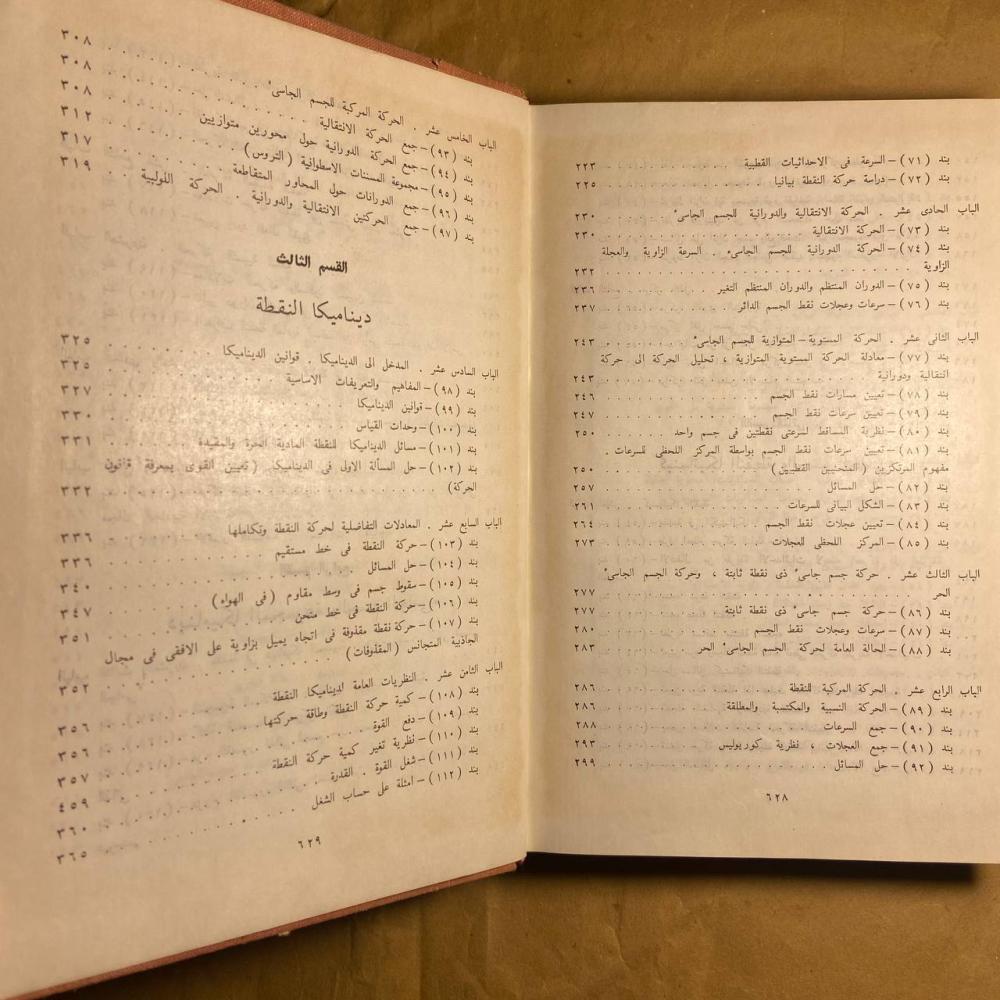 بند (٧١) – السرعة فى الاحداثيات القطبية . . . . . . . . . . ٢٢٣
بند (٧٢) – دراسة حركة النقطة بيانيا . . . . . . . . . . ٢٢٥
الباب الحادى عشر . الحركة الانتقالية والدورانية للجسم الجاسىء . . . . . . ٢٣٠
بند (٧٣) – الحركة الانتقالية . . . . . . . . . . ٢٣٠
بند (٧٤) – الحركة الدورانية للجسم الجاسىء . السرعة الزاوية والعجلة
الزاوية . . . . . . . . . . ٢٣٢
بند (٧٥) – الدوران المنتظم والدوران المنتظم التغير . . . . . . ٢٣٦
بند (٧٦) – سرعات وعجلات نقط الجسم الدائر . . . . . . ٢٣٧
الباب الثانى عشر . الحركة المستوية – المتوازية للجسم الجاسىء . . . . . . ٢٤٣
بند (٧٧) – معادلة الحركة المستوية المتوازية ، تحليل الحركة الى حركة
انتقالية ودورانية . . . . . . . . . . ٢٤٣
بند (٧٨) – تعيين مسارات نقط الجسم . . . . . . . . . . ٢٤٦
بند (٧٩) – تعيين سرعات نقط الجسم . . . . . . . . . . ٢٤٧
بند (٨٠) – نظرية المساقط لسرعتى نقطتين فى جسم واحد . . . . . ٢٥٠
بند (٨١) – تعيين سرعات نقط الجسم بواسطة المركز اللحظى للسرعات .
مفهوم المرتكزين (المنحنيين القطبيين) . . . . . . . . . . ٢٥٠
بند (٨٢) – حل المسائل . . . . . . . . . . ٢٥٧
بند (٨٣) – الشكل البيانى للسرعات . . . . . . . . . . ٢٦١
بند (٨٤) – تعيين عجلات نقط الجسم . . . . . . . . . . ٢٦٤
بند (٨٥) – المركز اللحظى للعجلات . . . . . . . . . . ٢٧٣
الباب الثالث عشر . حركة جسم جاسىء ذى نقطة ثابتة ، وحركة الجسم الجاسىء
الحر . . . . . . . . . . ٢٧٧
بند (٨٦) – حركة جسم جاسىء ذى نقطة ثابتة . . . . . . . ٢٧٧
بند (٨٧) – سرعات وعجلات نقط الجسم . . . . . . . . . . ٢٨٠
بند (٨٨) – الحالة العامة لحركة الجسم الجاسىء الحر . . . . . . ٢٨٣
الباب الرابع عشر . الحركة المركبة للنقطة . . . . . . . . . . ٢٨٦
بند (٨٩) – الحركة النسبية والمكتسبة والمطلقة . . . . . . . ٢٨٦
بند (٩٠) – جمع السرعات . . . . . . . . . . ٢٨٨
بند (٩١) – جمع العجلات ، نظرية كوريوليس . . . . . . . ٢٩٣
بند (٩٢) – حل المسائل . . . . . . . . . . ٢٩٩
٦٢٨
الباب الخامس عشر . الحركة المركبة للجسم الجاسىء . . . . . . . . . . ٣٠٨
بند (٩٣) – جمع الحركة الانتقالية . . . . . . . . . . ٣٠٨
بند (٩٤) – جمع الحركة الدورانية حول محورين متوازيين . . . . . . ٣٠٨
بند (٩٥) – مجموعة المسننات الاسطوانية (التروس) . . . . . . ٣١٢
بند (٩٦) – جمع الدورانات حول المحاور المتقاطعة . . . . . . ٣١٧
بند (٩٧) – جمع الحركتين الانتقالية والدورانية . الحركة اللولبية . . ٣١٩
القسم الثالث
ديناميكا النقطة
الباب السادس عشر . المدخل الى الديناميكا . قوانين الديناميكا . . . . . . ٣٢٥
بند (٩٨) – المفاهيم والتعريفات الاساسية . . . . . . . . . . ٣٢٥
بند (٩٩) – قوانين الديناميكا . . . . . . . . . . ٣٢٧
بند (١٠٠) – وحدات القياس . . . . . . . . . . ٣٣٠
بند (١٠١) – مسائل الديناميكا للنقطة المادية الحرة والمقيدة . . . . ٣٣١
بند (١٠٢) – حل المسألة الاولى فى الديناميكا (تعيين القوى بمعرفة قانون
الحركة) . . . . . . . . . . ٣٣٢
الباب السابع عشر . المعادلات التفاضلية لحركة النقطة وتكاملها . . . . ٣٣٦
بند (١٠٣) – حركة النقطة فى خط مستقيم . . . . . . . . . . ٣٣٦
بند (١٠٤) – حل المسائل . . . . . . . . . . ٣٤٠
بند (١٠٥) – سقوط جسم فى وسط مقاوم (فى الهواء) . . . . . . ٣٤٧
بند (١٠٦) – حركة النقطة فى خط منحن . . . . . . . . . . ٣٥١
بند (١٠٧) – حركة نقطة مقذوفة فى اتجاه يميل بزاوية على الافقى فى مجال
الجاذبية المتجانس (المقذوفات) . . . . . . . . . . ٣٥٢
الباب الثامن عشر . النظريات العامة لديناميكا النقطة . . . . . . ٣٥٦
بند (١٠٨) – كمية حركة النقطة وطاقة حركتها . . . . . . . . ٣٥٦
بند (١٠٩) – دفع القوة . . . . . . . . . . ٣٥٧
بند (١١٠) – نظرية تغير كمية حركة النقطة . . . . . . . . ٤٥٩
بند (١١١) – شغل القوة . القدرة . . . . . . . . . . ٣٦٠
بند (١١٢) – امثلة على حساب الشغل . . . . . . . . . . ٣٦٥
٦٢٩